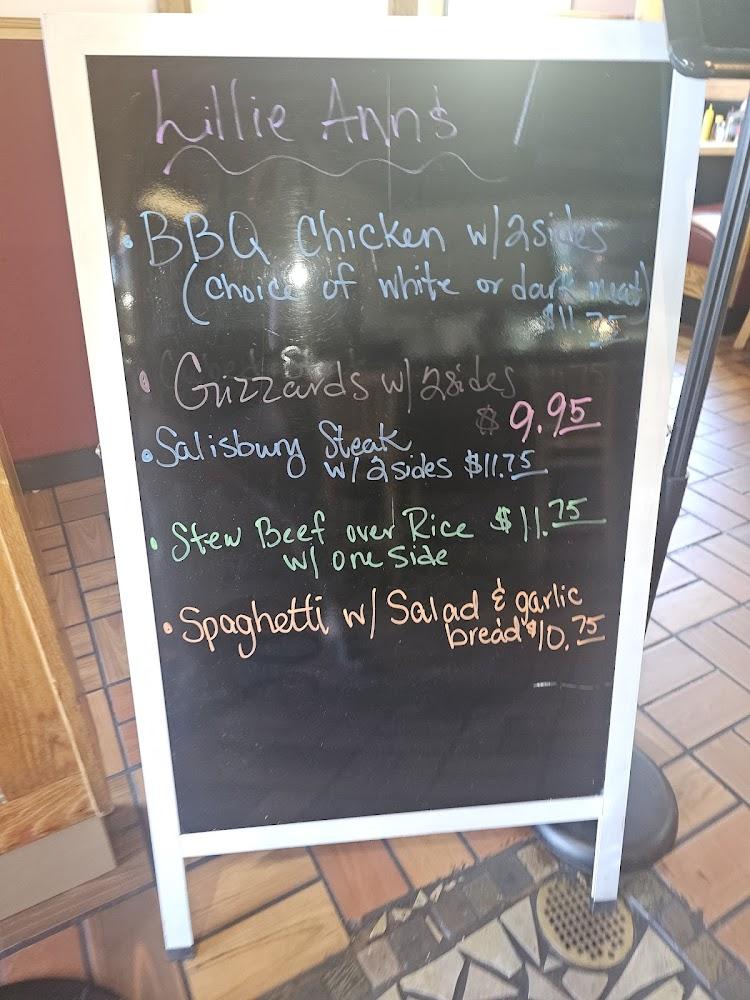 Lillie Ann's
• BBQ Chicken w/ 2 sides
(choice of white or dark meat)
$11.75
• Gizzards w/ 2 sides
$9.95
• Salisbury Steak
w/ 2 sides $11.75
• Stew Beef over Rice $11.75
w/ one side
• Spaghetti w/ Salad & garlic
bread $10.75